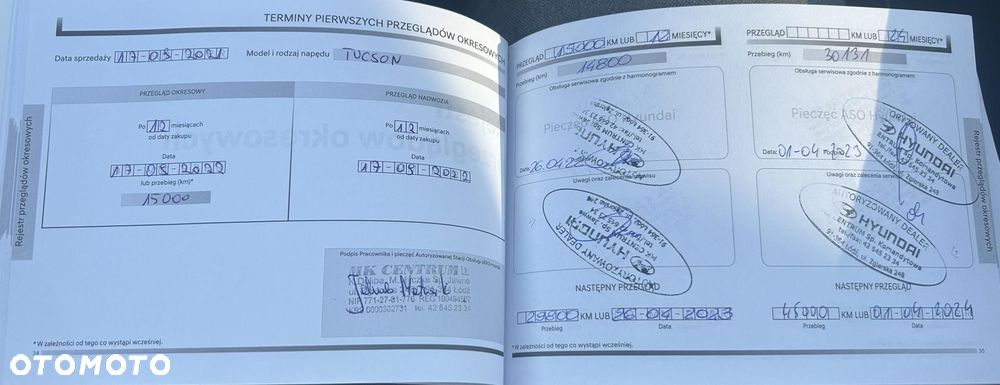 TERMINY PIERWSZYCH PRZEGLĄDÓW OKRESOWYCH
Data sprzedaży 17-05-2021 Model i rodzaj napędu TUCSON
PRZEGLĄD OKRESOWY
Po 12 miesiącach
od daty zakupu
Data
17-05-2022
lub przebieg (km)*
15000
PRZEGLĄD NADWOZIA
Po 12 miesiącach
od daty zakupu
Data
17-05-2022
Podpis Pracownika i pieczęć Autoryzowanej Stacji Obsługi
HK CENTRUM
NIP 771-27-81-776 REG 100494507
KRS 0000302731 tel. 42 645 23 34
*W zależności od tego co wystąpi wcześniej.
34
Rejestr przeglądów okresowych
PRZEGLĄD 15000 KM LUB 12 MIESIĘCY*
Przebieg (km) 14800
Obsługa serwisowa zgodnie z harmonogramem
Data: 26.04.22
HYUNDAI
Uwagi oraz zalecenia serwisu
AUTORYZOWANY DEALER
HYUNDAI
NASTĘPNY PRZEGLĄD
29800 KM LUB 26-04-2023
Przebieg Data
*W zależności od tego co wystąpi wcześniej.
PRZEGLĄD KM LUB 24 MIESIĘCY*
Przebieg (km) 30131
Obsługa serwisowa zgodnie z harmonogramem
Pieczęć ASO
AUTORYZOWANY DEALER
HYUNDAI
Data: 01-04-2023
Uwagi oraz zalecenia serwisu
AUTORYZOWANY DEALER
HYUNDAI
CENTRUM Sp. Komandytowa
tel./fax: 42 645 23 34
91-364 Łódź, ul. Zgierska 248
NASTĘPNY PRZEGLĄD
45000 KM LUB 01-04-2024
Przebieg Data
35
Rejestr przeglądów okresowych
OTOMOTO